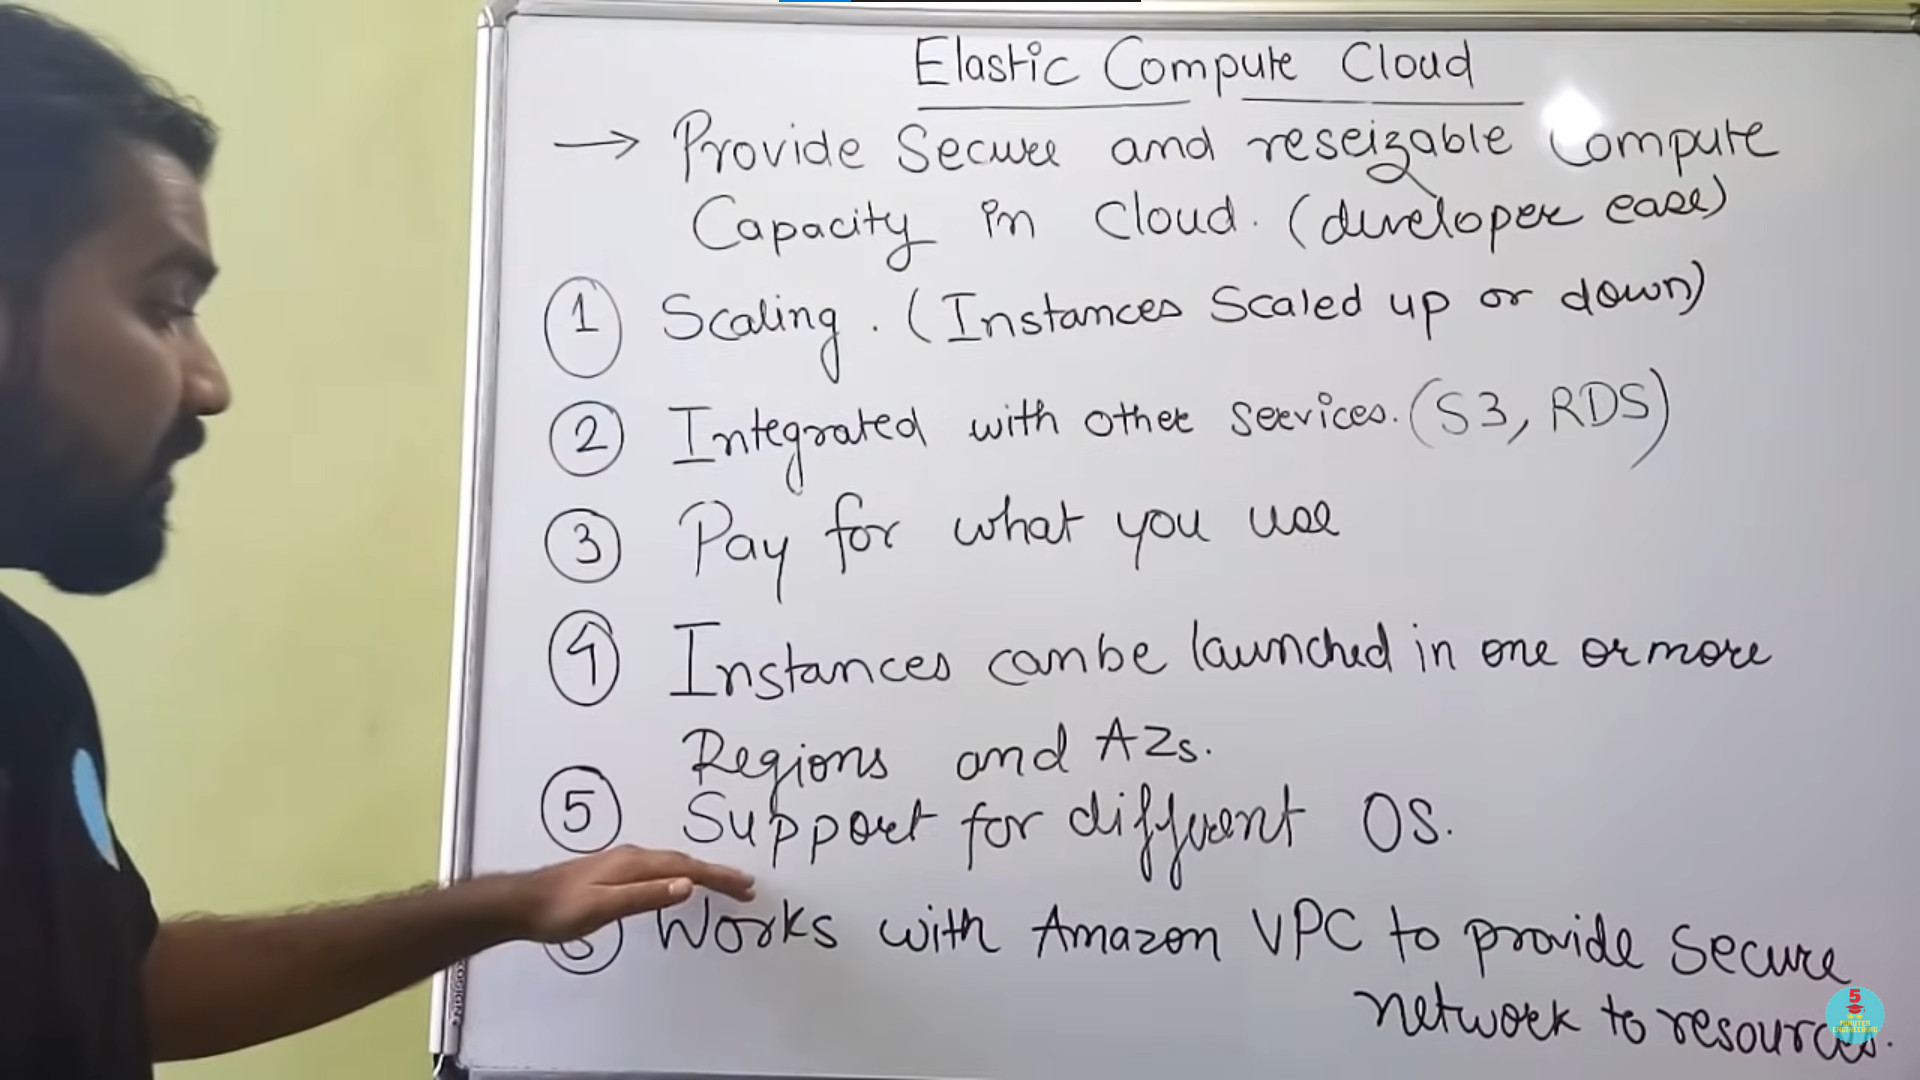 Elastic Compute Cloud
→ Provide Secure and reseizable Compute
Capacity in Cloud. (developer ease)
1 Scaling. (Instances Scaled up or down)
2 Integrated with other services. (S3, RDS)
3 Pay for what you use
4 Instances can be launched in one or more
Regions and AZs.
5 Support for different OS.
Works with Amazon VPC to provide Secure
network to resources.
5
MINUTES
ENGINEERING